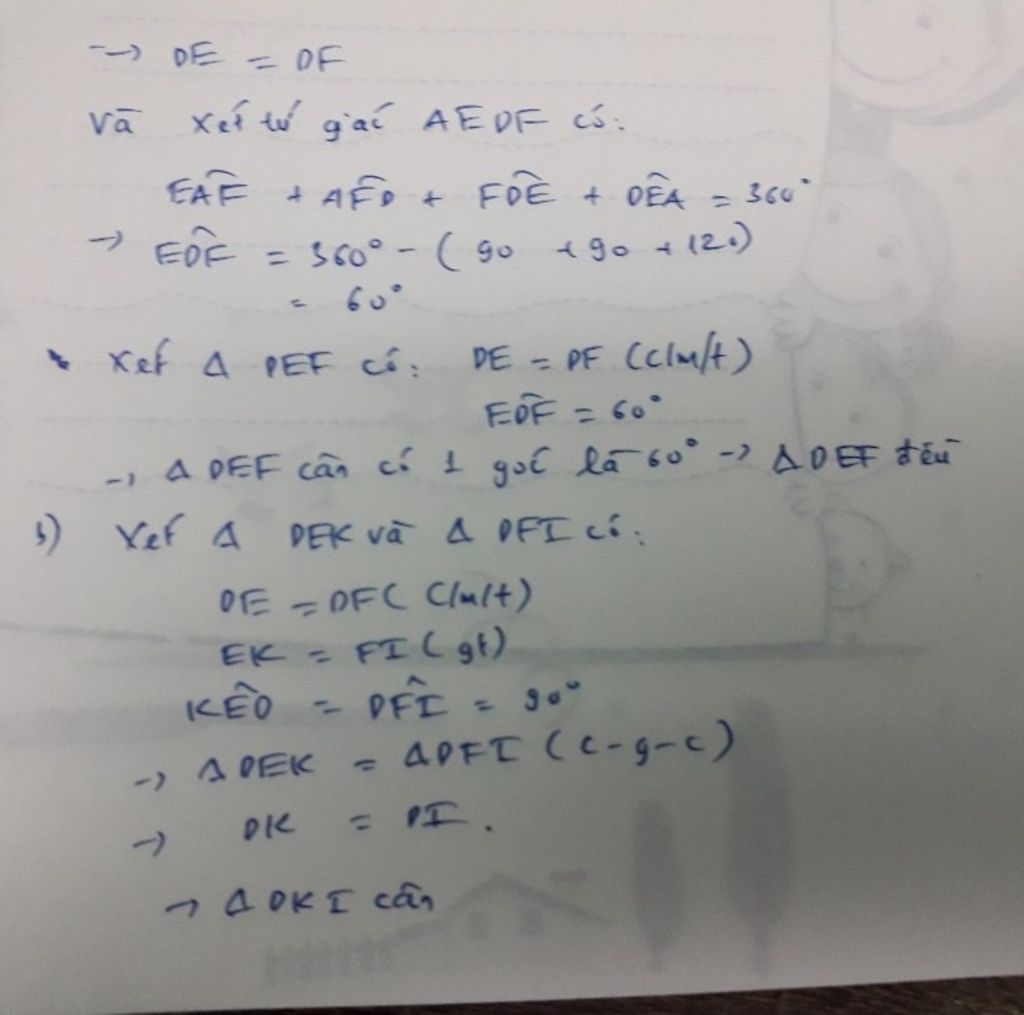 → DE = DF
Và xét tứ giác AEDF có:
EAF̂ + AF̂D + FD̂E + DÊA = 360°
→ ED̂F = 360° - ( 90 + 90 + 120)
= 60°
* Xét Δ DEF có: DE = DF (c/m/t)
ED̂F = 60°
→ Δ DEF cân có 1 góc là 60° → Δ DEF đều
b) Xét Δ DEK và Δ DFI có:
DE = DF ( c/m/t)
EK = FI ( gt)
KÊD = DF̂I = 90°
→ Δ DEK = Δ DFI ( c-g-c )
→ DK = DI.
→ Δ DKI cân